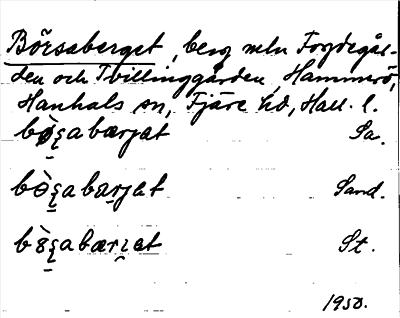 Börsaberget, berg mln Fogdegår-
den och Tvillinggården, Hammerö,
Hanhals sn, Fjäre hd, Hall. l.
bø̀ʂabærjət Sa.
bɵ̀ʂabærjət Sand.
bɞ̀ʂabærɪət St.
1950.